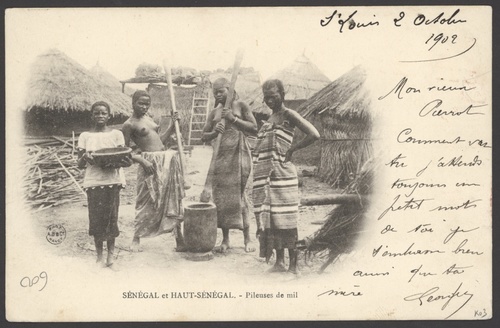 St Louis 2 Octobre
1902
Mon vieux
Pierrot
Comment vas
tu j'attends
toujours un
petit mots
de toi je
t'embrasse bien
ainsi que ta
mère Georges
SÉNÉGAL et HAUT-SÉNÉGAL. - Pileuses de mil
209